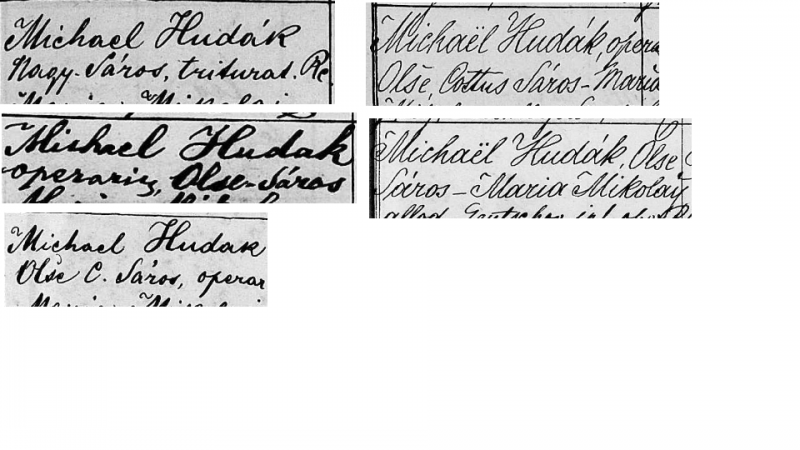 Michael Hudák
Nagy-Sáros, triturat. Re
Maria Mikolaj
Michaël Hudák, opera
Olše, Cottus Sáros-Maria
Michael Hudak
operariz, Olse-Sáros
Michaël Hudák, Olse
Sáros-Maria Mikolaÿ
Michael Hudak
Olše C. Sáros, operar
Maria Mikolaj